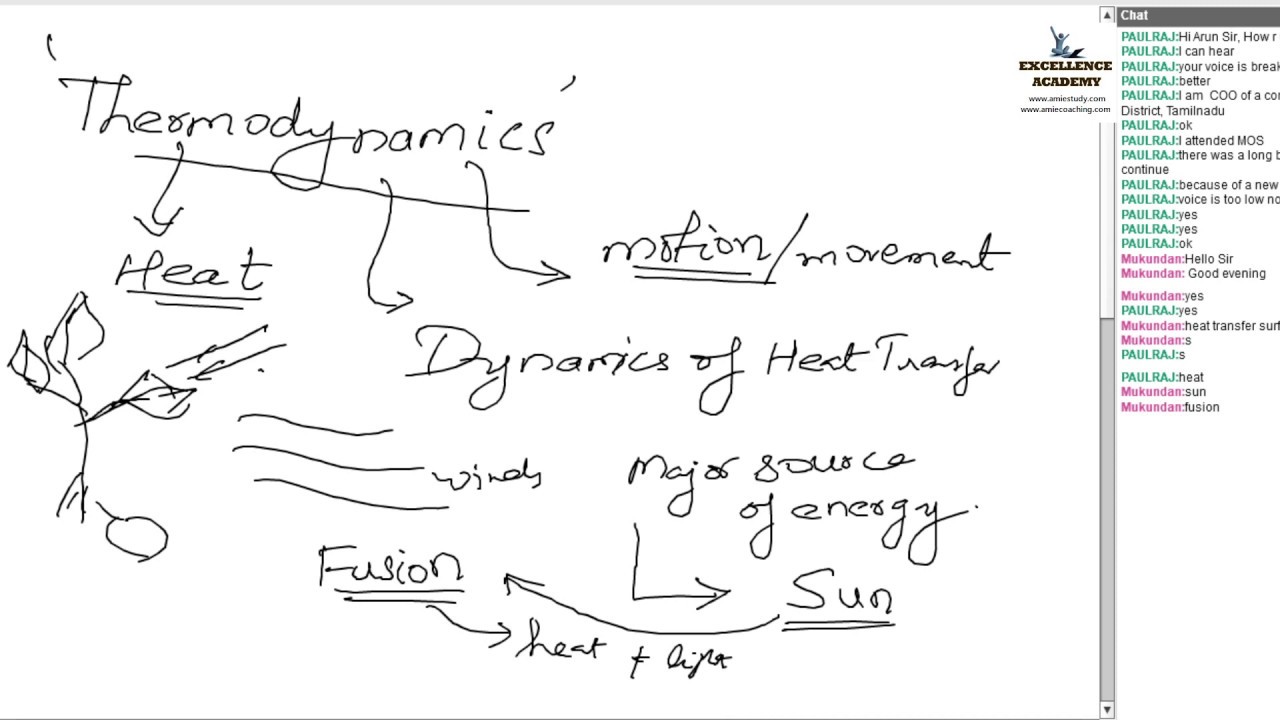 'Thermodynamics'
Heat
motion/movement
Dynamics of Heat Transfer
winds
Major source
of energy.
Fusion
Sun
heat + light
EXCELLENCE
ACADEMY
www.amiestudy.com
www.amiecoaching.com
Chat
PAULRAJ:Hi Arun Sir, How r
PAULRAJ:I can hear
PAULRAJ:your voice is break
PAULRAJ:better
PAULRAJ:I am COO of a cor
District, Tamilnadu
PAULRAJ:ok
PAULRAJ:I attended MOS
PAULRAJ:there was a long b
continue
PAULRAJ:because of a new
PAULRAJ:voice is too low no
PAULRAJ:yes
PAULRAJ:yes
PAULRAJ:ok
Mukundan:Hello Sir
Mukundan: Good evening
Mukundan:yes
PAULRAJ:yes
Mukundan:heat transfer surf
Mukundan:s
PAULRAJ:s
PAULRAJ:heat
Mukundan:sun
Mukundan:fusion